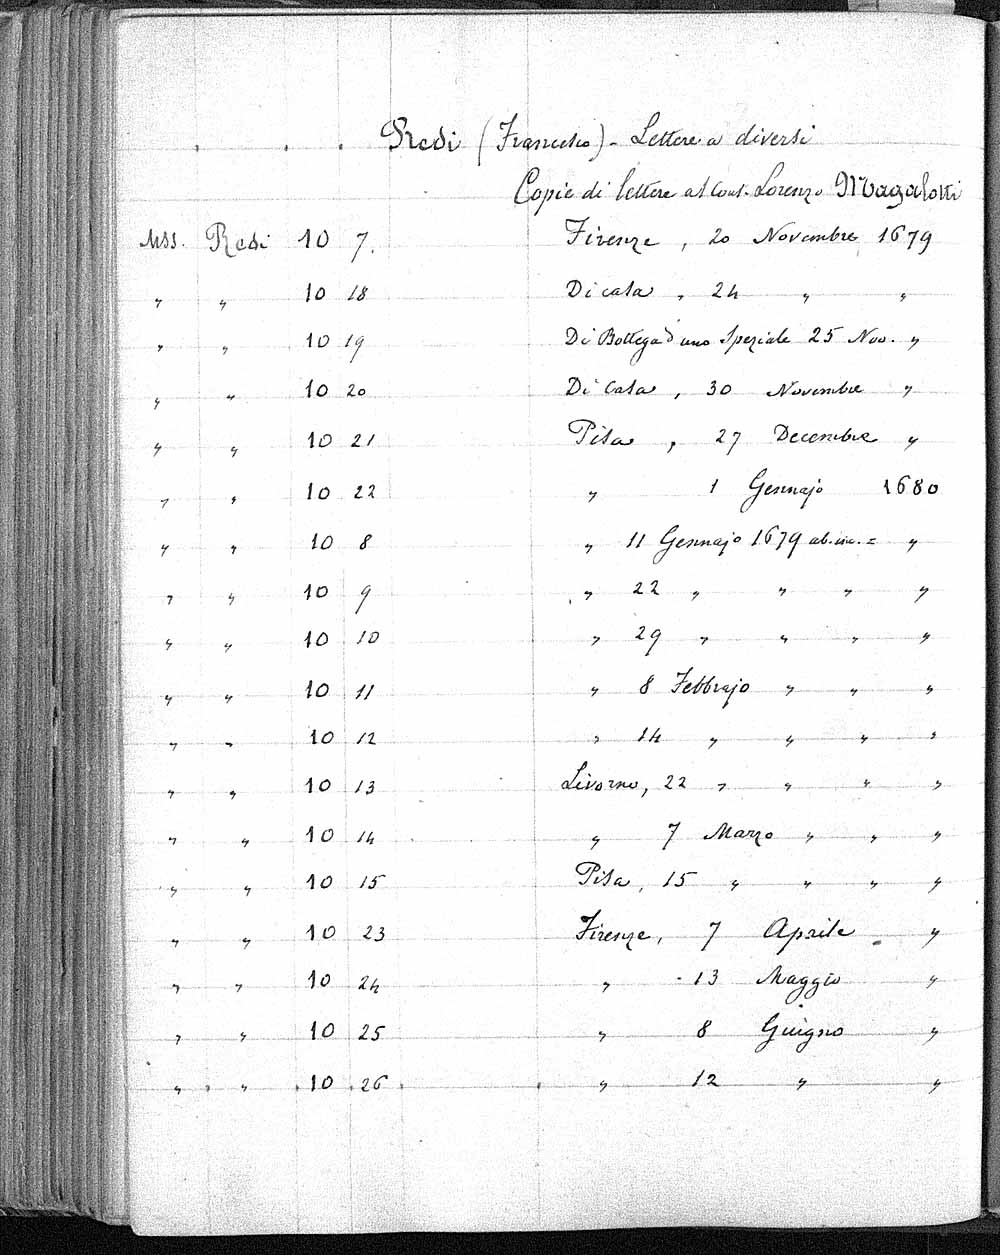 Redi (Francesco) - Lettere a diversi
Copie di lettere al Cont. Lorenzo Magalotti
Mss. Redi 10 7. Firenze, 20 Novembre 1679
" " 10 18 Di casa, 24 " "
" " 10 19 Di Bottega d'uno Speziale 25 Nov. "
" " 10 20 Di Casa, 30 Novembre "
" " 10 21 Pisa, 27 Decembre "
" " 10 22 " 1 Gennajo 1680
" " 10 8 " 11 Gennajo 1679 ab. inc. = "
" " 10 9 " 22 " " " "
" " 10 10 " 29 " " " "
" " 10 11 " 8 Febbrajo " " "
" " 10 12 " 14 " " " "
" " 10 13 Livorno, 22 " " " "
" " 10 14 " 7 Marzo " " "
" " 10 15 Pisa, 15 " " " "
" " 10 23 Firenze, 7 Aprile "
" " 10 24 " 13 Maggio "
" " 10 25 " 8 Giugno "
" " 10 26 " 12 " "